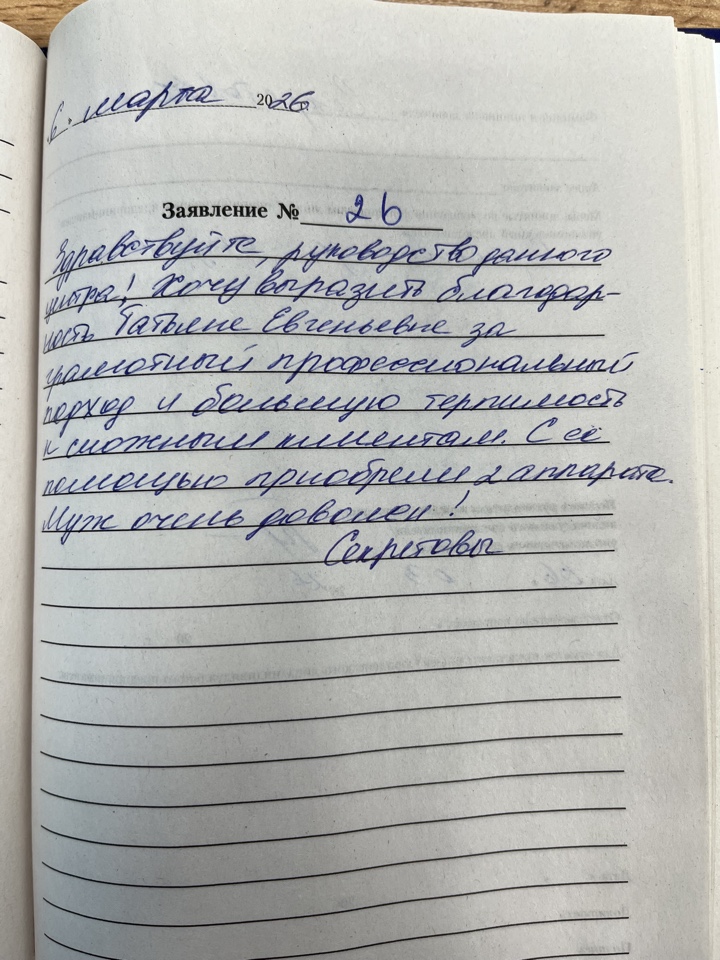 6. марта 2026г
Заявление № 26
Здравствуйте, руководство данного
центра! Хочу выразить благодар-
ность Татьяне Евгеньевне за
грамотный профессиональный
подход и большую терпимость
к сложным клиентам. С её
помощью приобрели 2 аппарата.
Муж очень доволен!
Секретовы